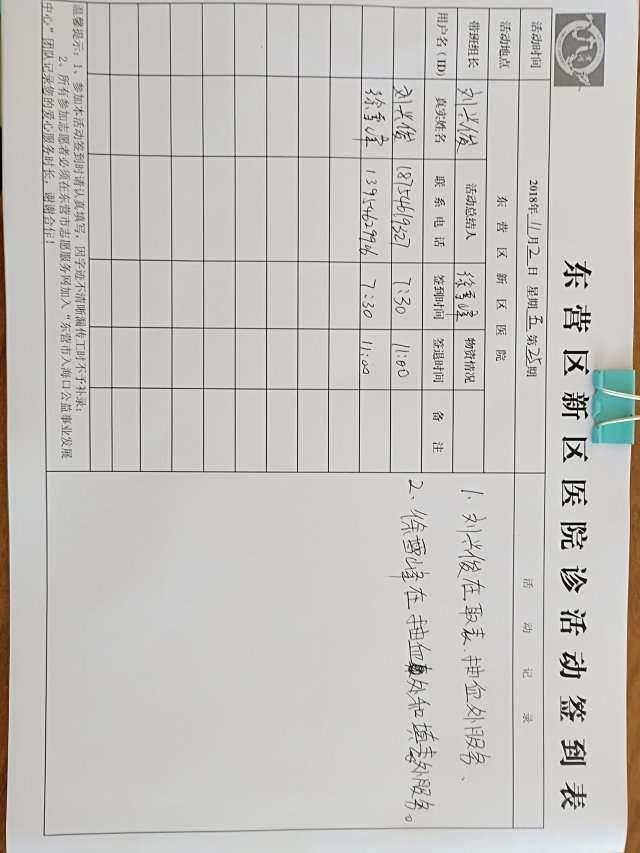 东营区新区医院诊活动签到表
活动时间 2018年11月2日 星期五 第25期
活动地点 东营区新区医院 活动记录
带班组长 刘兴俊 活动总结人 徐雪峰 物资情况
用户名（ID） 真实姓名 联系电话 签到时间 签退时间 备注
刘兴俊 18754619327 7:30 11:00
徐雪峰 13954629906 7:30 11:00
1、刘兴俊在取表、抽血处服务、
2、徐雪峰在抽血处和填表处服务。
温馨提示：1、参加本活动签到时请认真填写，因字迹不清晰漏传工时不予补录；
2、所有参加志愿者必须在东营市志愿服务网加入“东营市入海口公益事业发展
中心”团队记录您的爱心服务时长，谢谢合作！